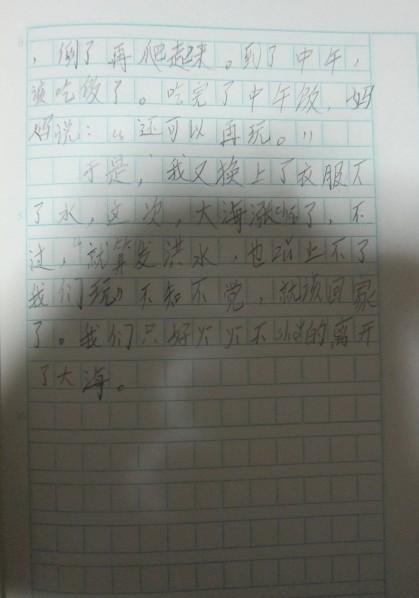 ，倒了再爬起来。到了中午，
该吃饭了。吃完了中午饭，妈
妈说：“还可以再玩。”
于是，我又换上了衣服下
了水，这次，大海涨cháo了，不
过，“就算发洪水，也zǔ止不了
我们玩”不知不觉，就该回家
了。我们只好 不shě的离开
了大海。